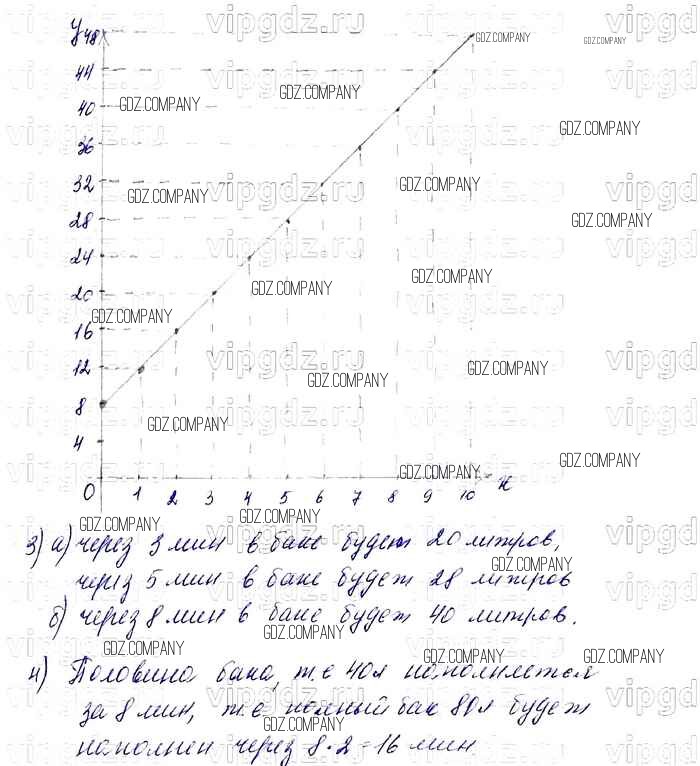 y 48
44
40
36
32
28
24
20
16
12
8
4
0 1 2 3 4 5 6 7 8 9 10 x
3) а) через 3 мин в баке будет 20 литров,
через 5 мин в баке будет 28 литров
б) через 8 мин в баке будет 40 литров.
4) Половина бака, т.е 40л наполняется
за 8 мин, т.е полный бак 80л будет
наполнен через 8·2=16 мин.
vipgdz.ru
GDZ.COMPANY